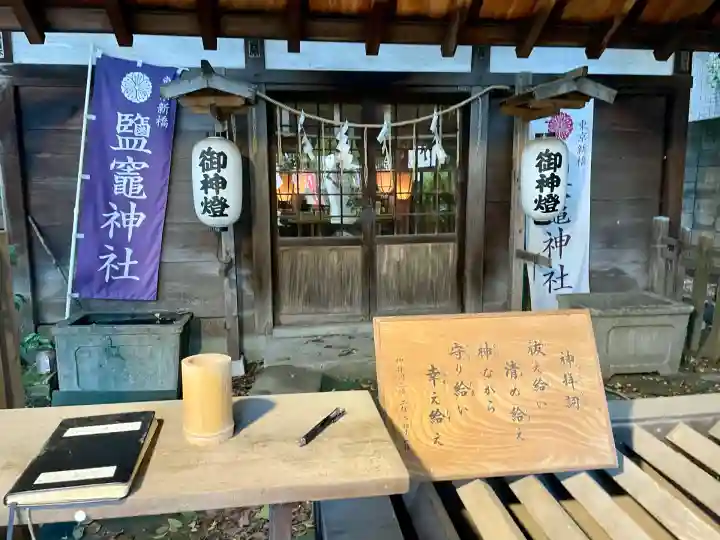 鹽竈神社
新橋
御神燈
御神燈
東京新橋
竈神社
神拝詞
祓え給い
清め給え
神ながら
守り給い
幸え給え